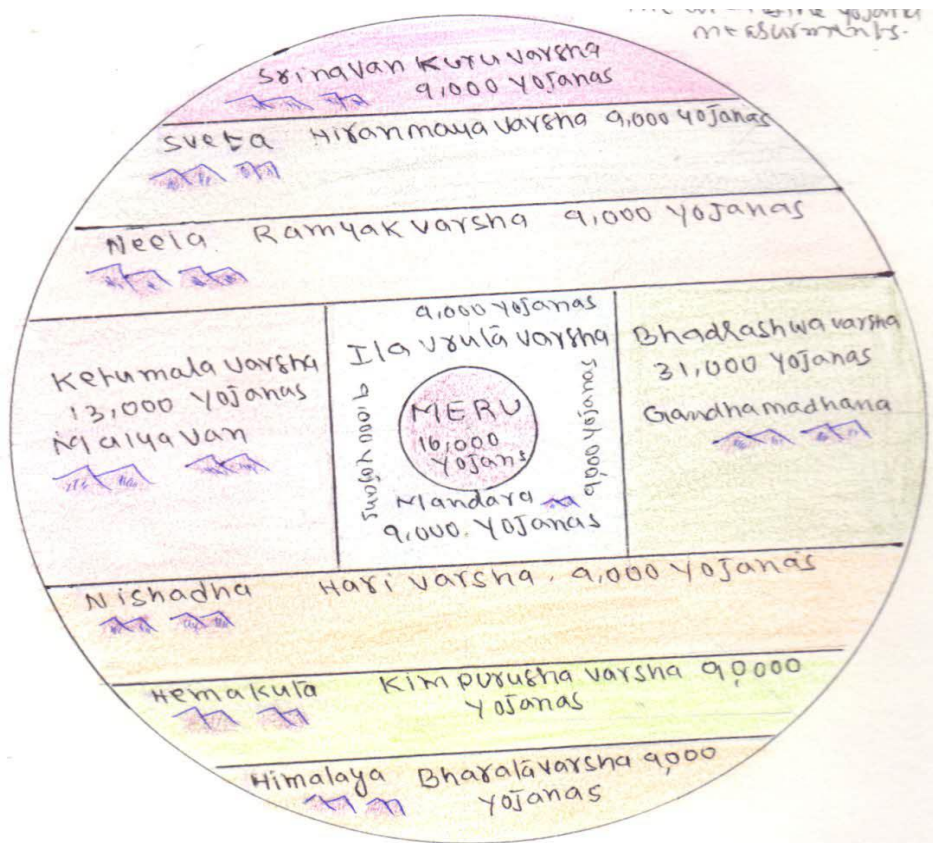 measurments.
Srinavan Kuru varsha
9,000 Yojanas
Sveta Hiranmaya varsha 9,000 Yojanas
Neela Ramyak varsha 9,000 Yojanas
9,000 Yojanas
Ila vruta varsha
Ketumala varsha
13,000 Yojanas
Malyavan
9,000 Yojans
MERU
16,000
Yojans
9,000 Yojanas
Mandara
9,000 Yojanas
Bhadrashwa varsha
31,000 Yojanas
Gandhamadhana
Nishadha Hari varsha. 9,000 Yojanas
Hemakuta Kimpurusha varsha 9,000
Yojanas
Himalaya Bharatavarsha 9,000
Yojanas